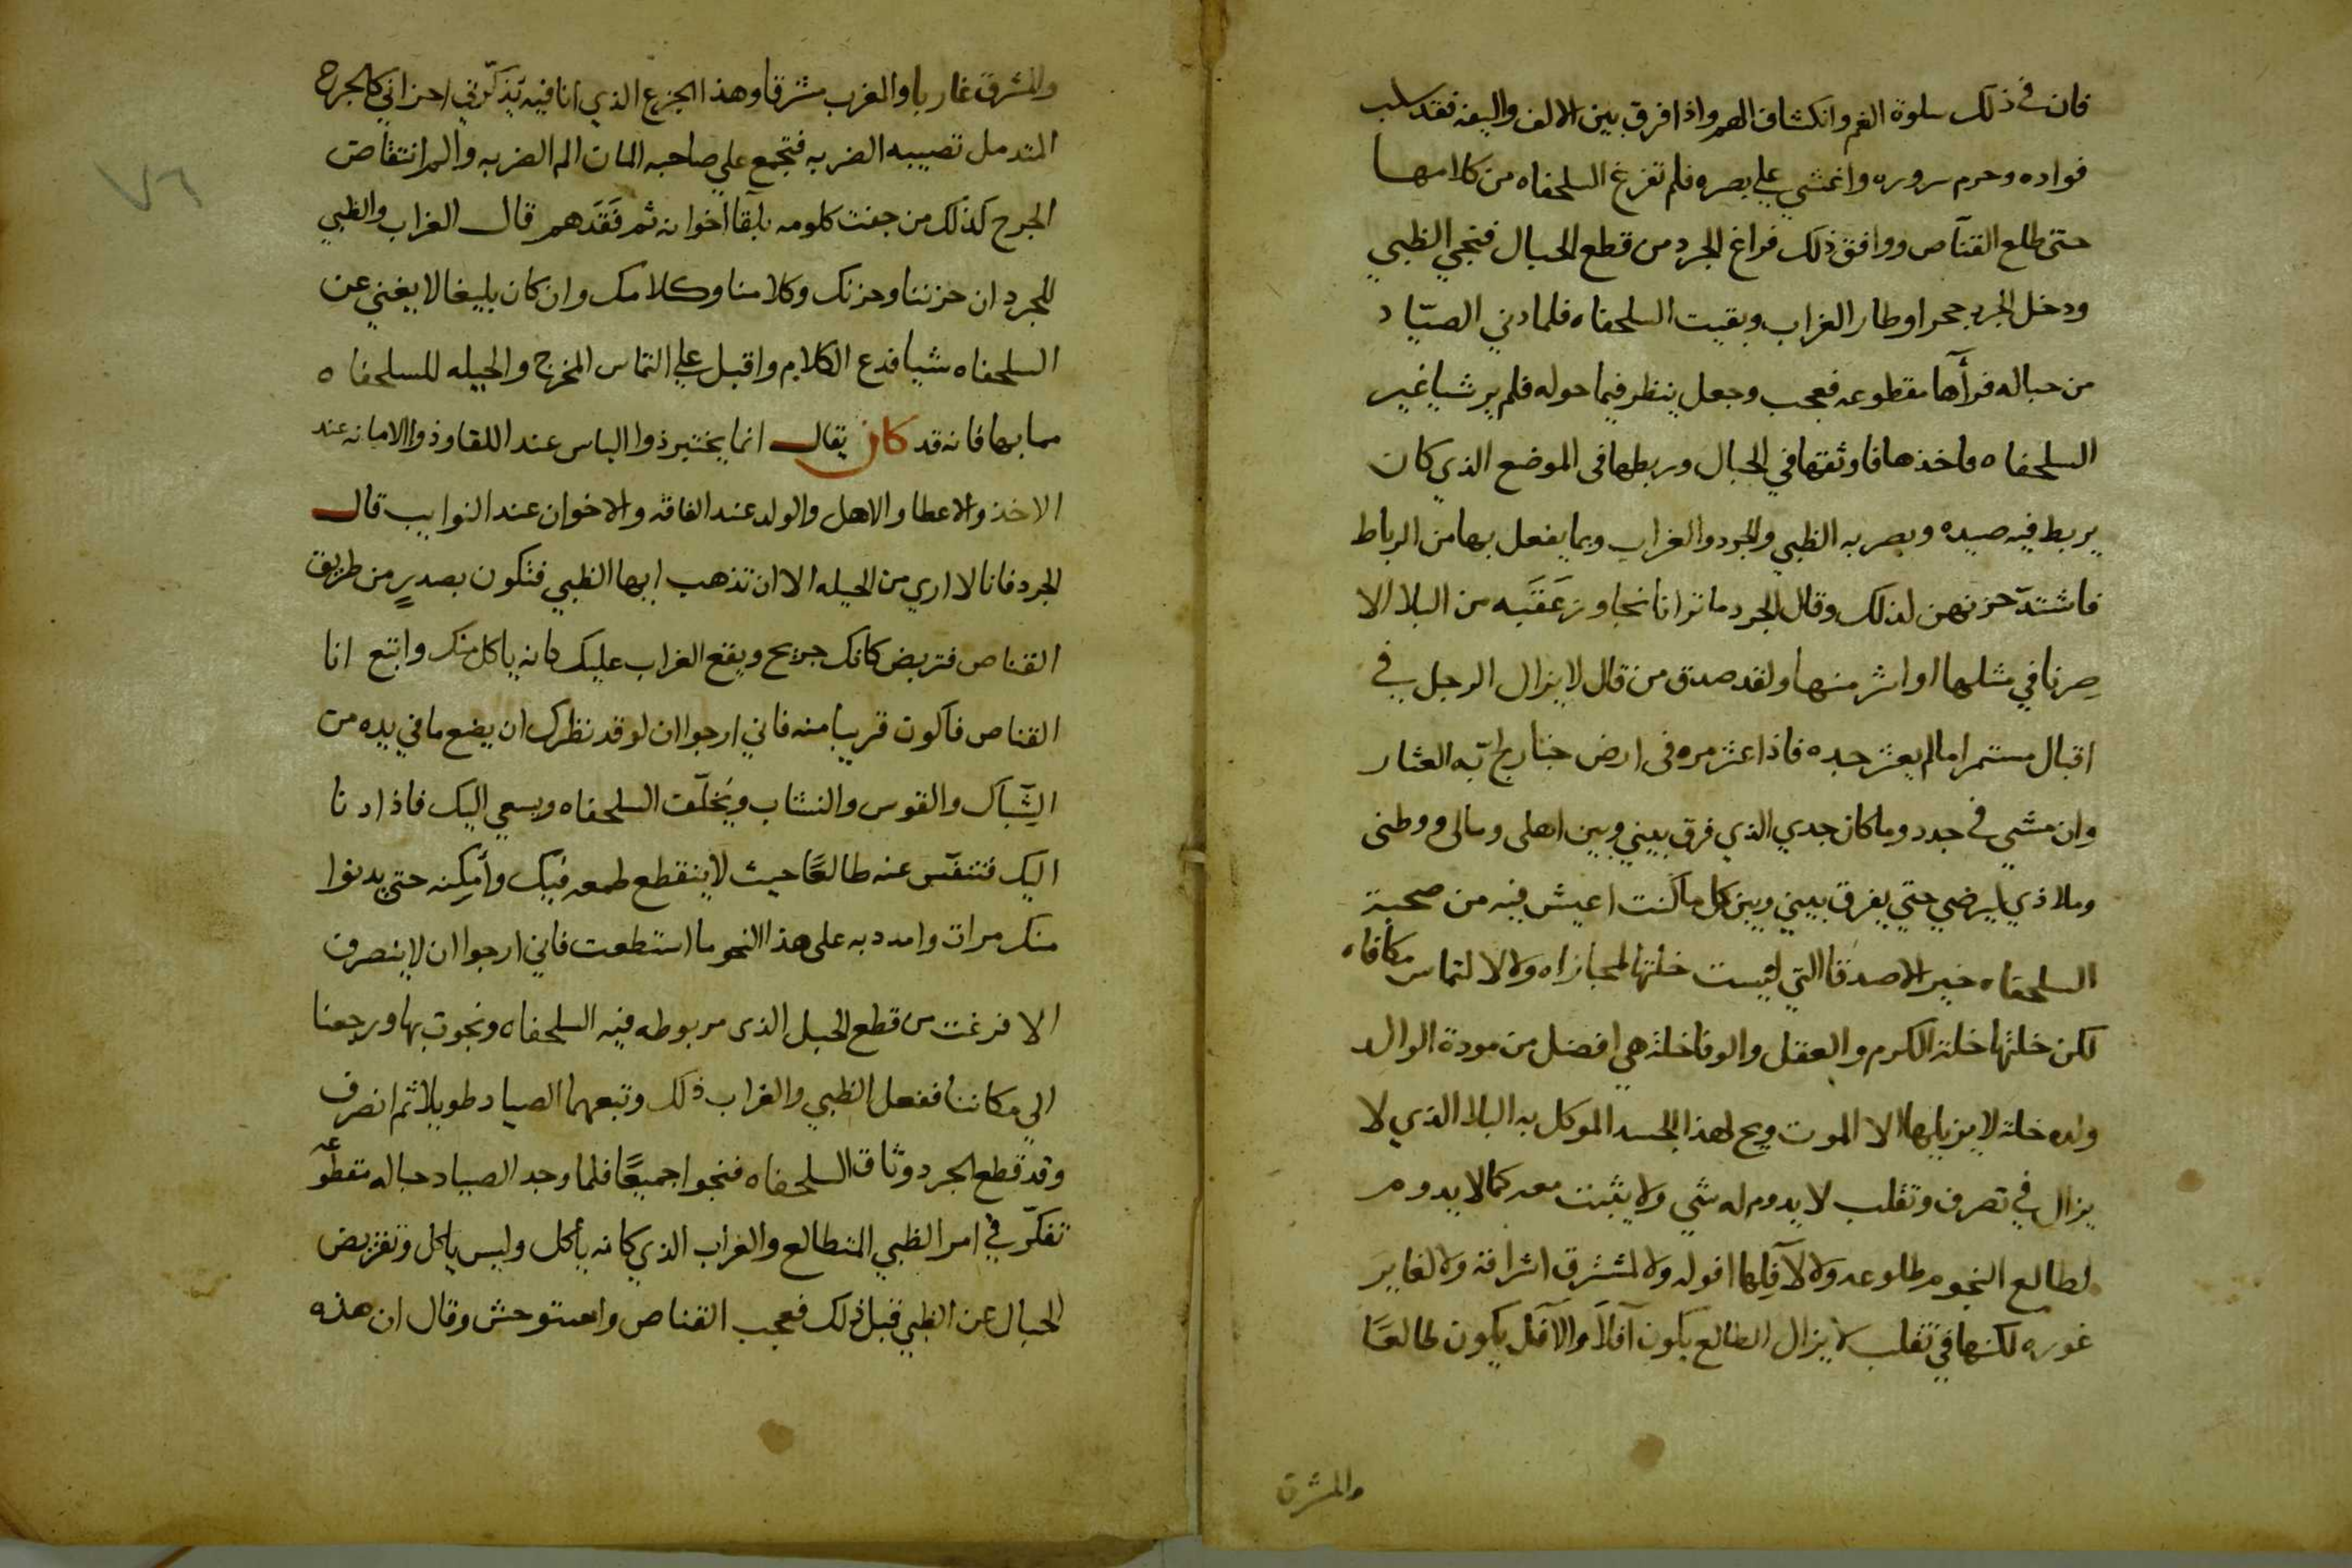 فان في ذلك سلوة الغم وانكشاف الهم واذا فرق بين الالف واليفه فقد سلب
فواده وحرم سروره واغشي علي بصره فلم تفرغ السلحفاه من كلامها
حتى طلع القنّاص ووافق ذلك فراغ الجرد من قطع الحبال فنجي الظبي
ودخل الجرد جحرا وطار الغراب وبقيت السلحفاه فلما دني الصيّاد
من حباله فرأها مقطوعه فعجب وجعل ينظر فيما حوله فلم ير شيا غير
السلحفاه فاخذها فاوثقها في الحبال وربطها في الموضع الذي كان
يربط فيه صيده وبصر به الظبي والجرد والغراب وبما يفعل بها من الرباط
فاشتدّ حزنهن لذلك وقال الجرد ما ترانا نجاوز عَقَبه من البلا الا
صِرنا في مثلها او اشر منها ولقد صدق من قال لا يزال الرجل في
اقبال مستمرا ما لم يعثر جده فاذا عثر مره في ارض خبار لج به العثار
وان مشي في جدد وما كان جدي الذي فرق بيني وبين اهلى ومالى ووطنى
وملاذي ليرضي حتي يفرق بيني وبين كل ما كنت اعيش فيه من صحبة
السلحفاه خير الاصدقا التي ليست خلتها لمجازاه ولا لالتماس مكافاه
لكن خلتها خلة الكرم والعقل والوفا خلة هي افضل من مودة الوالد
ولده خلة لا يزيلها الا الموت ويح لهذا الجسد الموكل به البلا الذي لا
يزال في تصرف وتقلب لا يدوم له شي ولا يثبت معه كما لا يدوم
لطالع النجوم طلوعه ولا لآفلها افوله ولا لمشرق اشراقه ولا لغاير
غوره لكنها في تقلب لا يزال الطالع يكون آفلاً والآفل يكون طالعًا
والمشرق
والمشرق غاربا والغرب مشرقا وهذا الجزع الذي انا فيه يذكّرني احزاني كالجرح
المندمل تصيبه الضربه فتجمع علي صاحبه المان الم الضربه والم انتقاض
الجرح كذلك من جفت كلومه بلقا اخوانه ثم فَقَدهم قال الغراب والظبي
للجرد ان حزننا وحزنك وكلامنا وكلامك وان كان بليغا لا يغني عن
السلحفاه شيا فدع الكلام واقبل علي التماس المخرج والحيله للسلحفاه
مما بها فانه قد كان يقال انما يختبر ذوا الباس عند اللقا وذوا الامانه عند
الاخذ والاعطا والاهل والولد عند الفاقه والاخوان عند النوايب قال
الجرد فانا لا اري من الحيله الا ان تذهب ايها الظبي فتكون بصدرٍ من طريق
القناص فتربض كانك جريح ويقع الغراب عليك كانه ياكل منك واتبع انا
القناص فاكون قريبا منه فاني ارجوا ان لو قد نظرك ان يضع ما في يده من
الشّباك والقوس والنشاب ويخلّف السلحفاه ويسعي اليك فاذا دنا
اليك فتنفّس عنه طالعًا حيث لا ينقطع طمعه فيك وأمكِنه حتي يدنوا
منك مرات وامدد به على هذا النحو ما استطعت فاني ارجوا ان لا ينصرف
الا فرغت من قطع الحبل الذى مربوطه فيه السلحفاه ونجوت بها ورجعنا
الي مكاننا ففعل الظبي والغراب ذلك وتبعهما الصياد طويلا ثم انصرف
وقد قطع الجرد وثاق السلحفاه فنجوا جميعًا فلما وجد الصياد حباله مقطوعه
تفكّر في امر الظبي المتطالع والغراب الذي كانه ياكل وليس ياكل وتقريض
الحبال عن الظبي قبل ذلك فعجب القناص واستوحش وقال ان هذه
٧٦